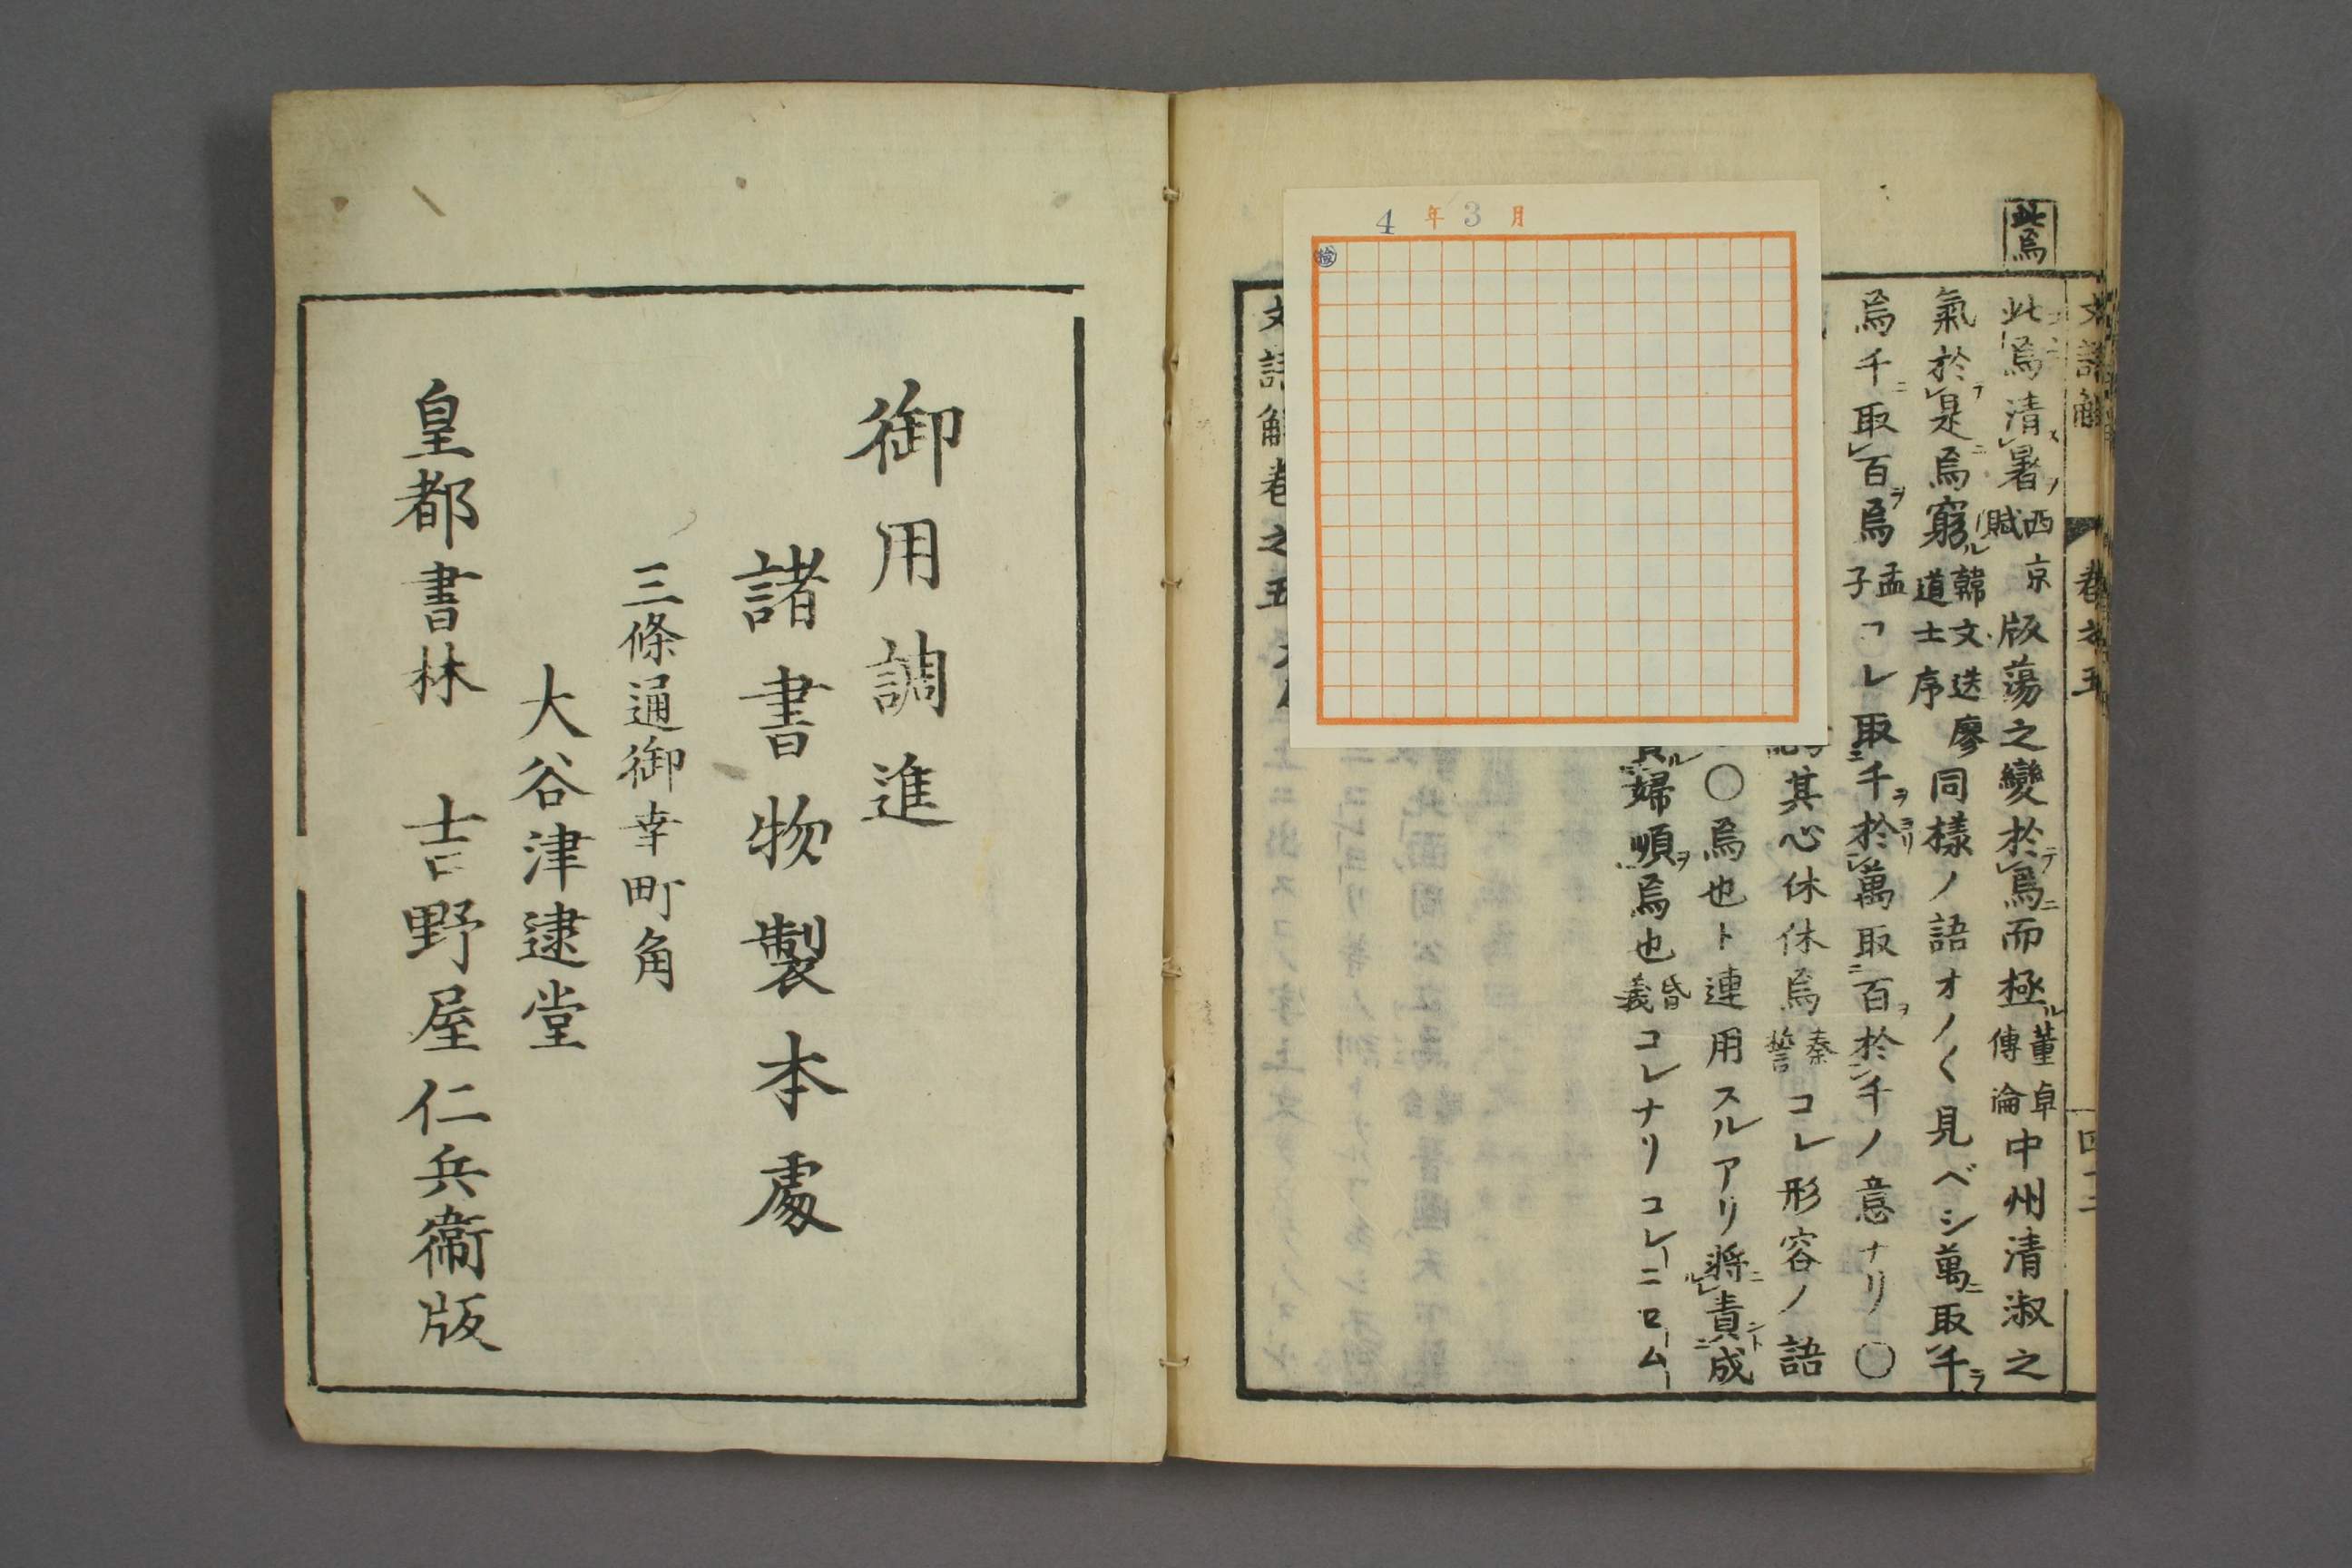 文語解 卷之五
此焉
此焉清暑西京賦版蕩之變於焉而極董卓傳論中州清淑之
氣於是焉窮韓文送廖道士序同樣ノ語オノく見ベシ萬取千
焉千取百焉孟子コレ取千於萬取百於千ノ意ナリ〇
其心休休焉秦誓コレ形容ノ語
〇焉也ト連用スルアリ將責成
婦順焉也昏義コレナリコレーニロームー
文語解卷之五
4年3月
檢
御用調進
諸書物製本處
三條通御幸町角
大谷津逮堂
皇都書林 吉野屋仁兵衞版